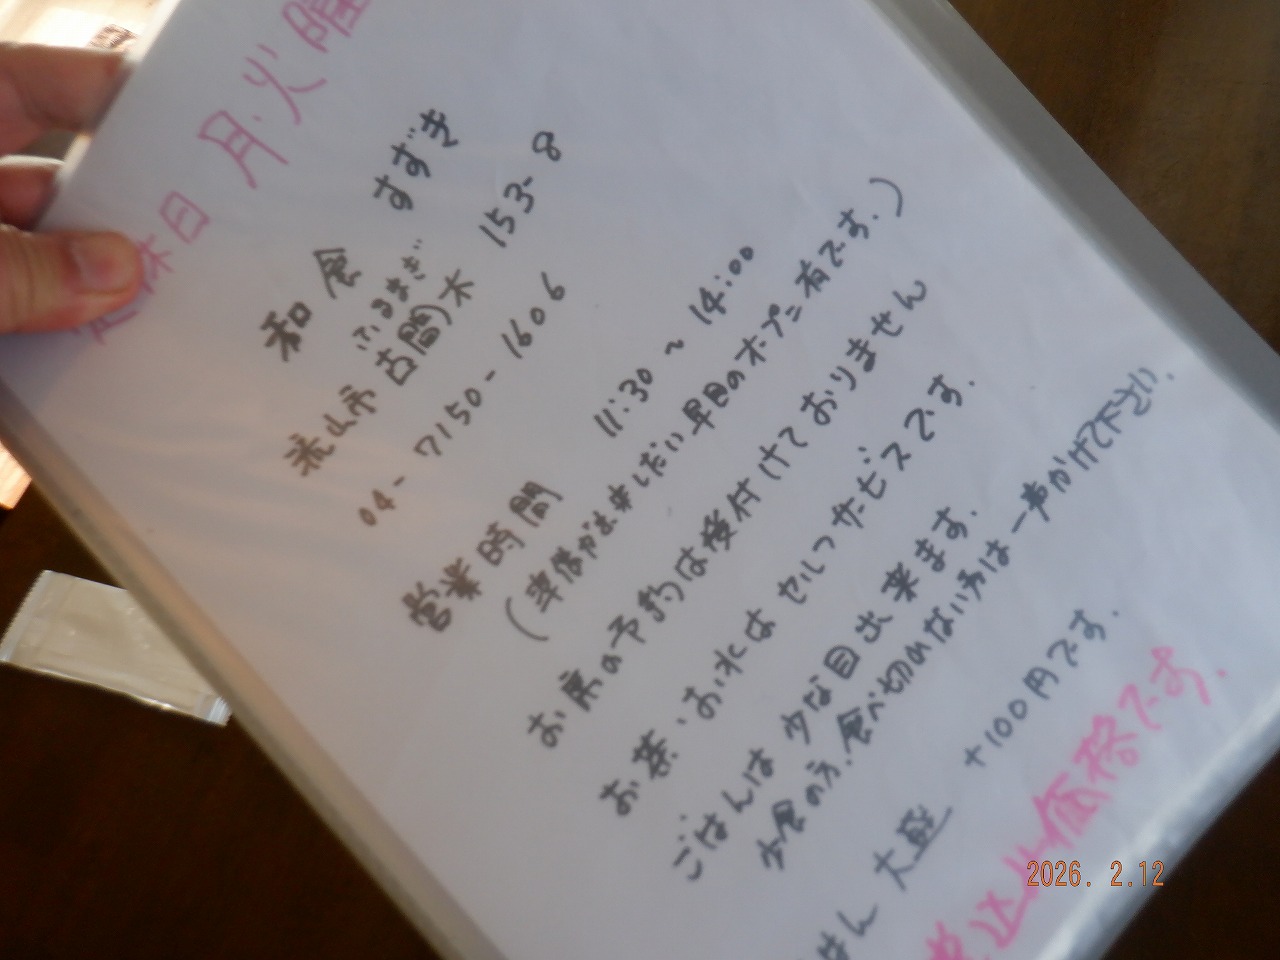 定休日 月・火曜
和食 すずき
ふるまぎ
流山市 古間木 153-8
04-7150-1606
営業時間 11:30～14:00
(準備が出来しだい早目のオープン有です。)
お席の予約は後付けておりません
お茶・お水は セルフサービスです。
ごはんは 少な目出来ます。
少食の方、食べ切れない方は一声かけて下さい。
ごはん 大盛 +100円です。
税込み価格です。
2026. 2.12